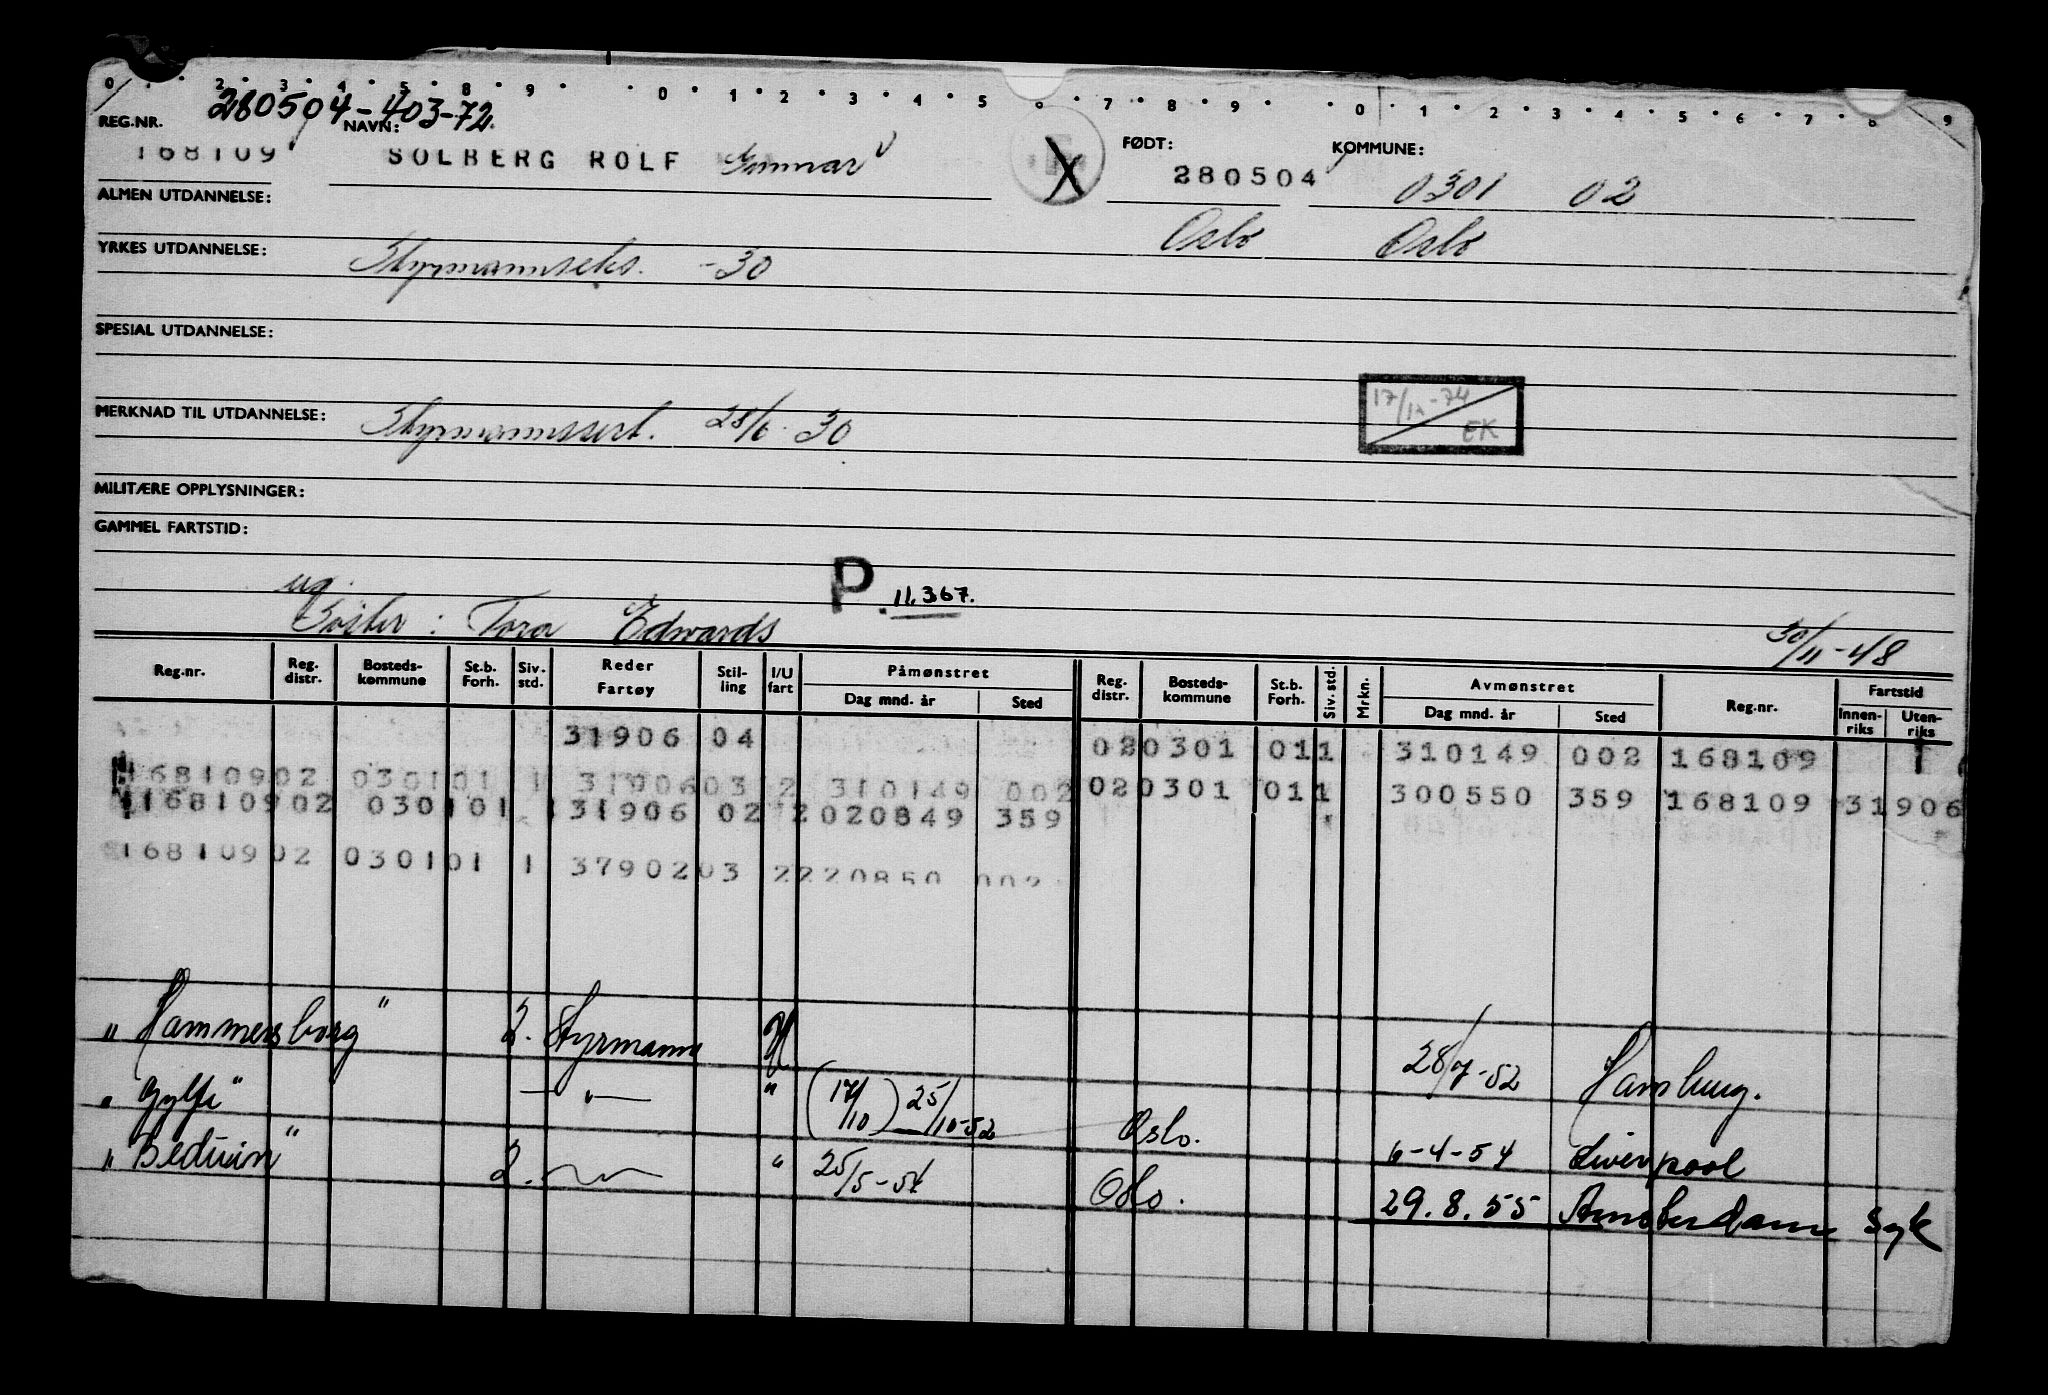 0 1 2 3 4 5 8 9 0 1 2 3 4 5 6 7 8 9 0 1 2 3 4 5 6 7 8 9
280504-403-72
REG.NR. NAVN: FØDT: KOMMUNE:
168109 SOLBERG ROLF Gunnar X 280504 0301 02
ALMEN UTDANNELSE: Oslo Oslo
YRKES UTDANNELSE: Styrmannseks. -30
SPESIAL UTDANNELSE:
MERKNAD TIL UTDANNELSE: Styrmannssert. 28/6-30
17/12-74 EK
MILITÆRE OPPLYSNINGER:
GAMMEL FARTSTID:
P. 11.367.
ug.
Søster: Tora Edwards 30/11-48
Reg.nr. Reg. distr. Bosteds- kommune St.b. Forh. Siv. std. Reder Fartøy Stil- ling I/U fart Påmønstret Dag mnd. år Sted Reg. distr. Bosteds- kommune St.b. Forh. Siv. std. Mrkn. Avmønstret Dag mnd. år Sted Reg.nr. Fartstid Innen- riks Uten- riks
31906 04 020301 011 310149 002 168109 1
16810902 030101 1 3190603 2 310149 002 020301 011 300550 359 168109 31906
16810902 030101 31906 02 2020849 359
16810902 030101 1 3790203 2220850 002
"Hammersborg" 2. Styrmann U 28/7-52 Hamburg.
"Gylfe" —"— " (17/10) 25/10-52 Oslo. 6-4-54 Liverpool
"Beduin" 2. " 25/5-54 Oslo. 29.8.55 Amsterdam syk